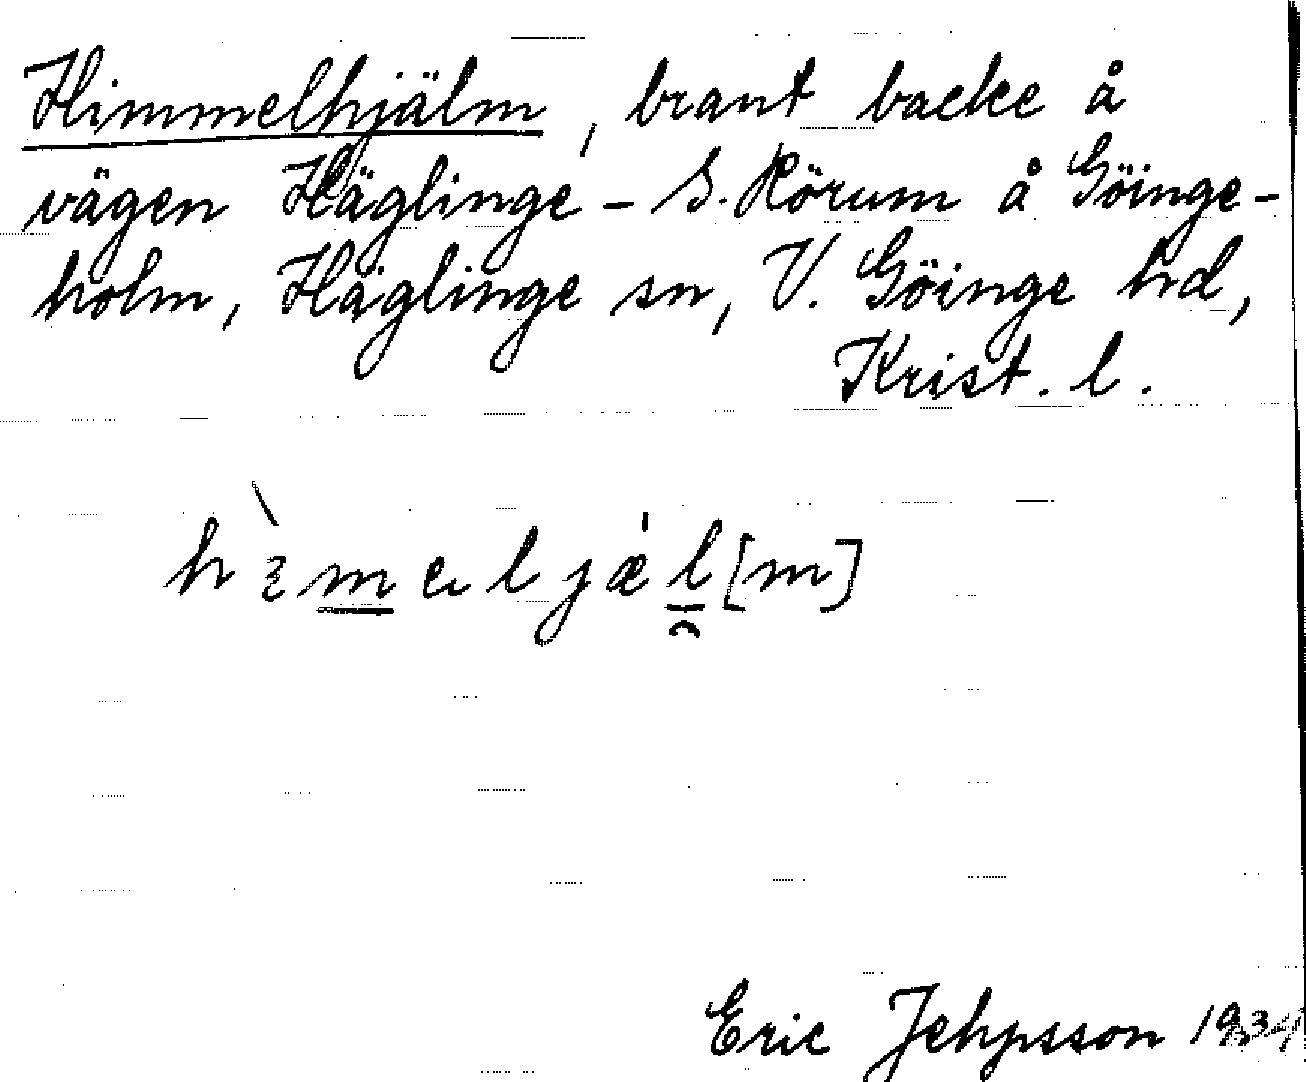 Himmelhjälm, brant backe å
vägen Häglinge - S. Rörum å Göinge-
holm, Häglinge sn, V. Göinge hd,
Krist. l.
Eric Jehpsson 1934